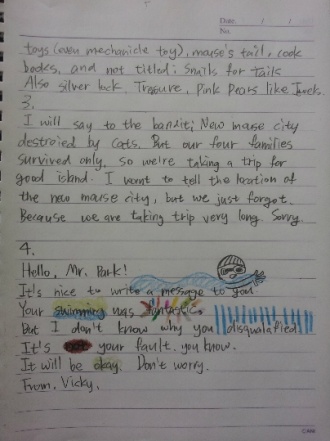 Date / /
No.
toys (even mechanicle toy), mouse's tail, cook
books, and not titled; Snails for Tails
Also silver lock, Treasure, Pink Pears like
3.
I will say to the bandit; New mouse city
destroied by cats. But our four families
survived only, so we're taking a trip for
good island. I want to tell the location of
the new mouse city, but we just forgot.
Because we are taking trip very long. Sorry.
4.
Hello, Mr. Park!
It's nice to write a message to you.
Your swimming was fantastic.
But I don't know why you disqualafied.
It's not your fault. you know.
It will be okay. Don't worry.
From, Vicky.